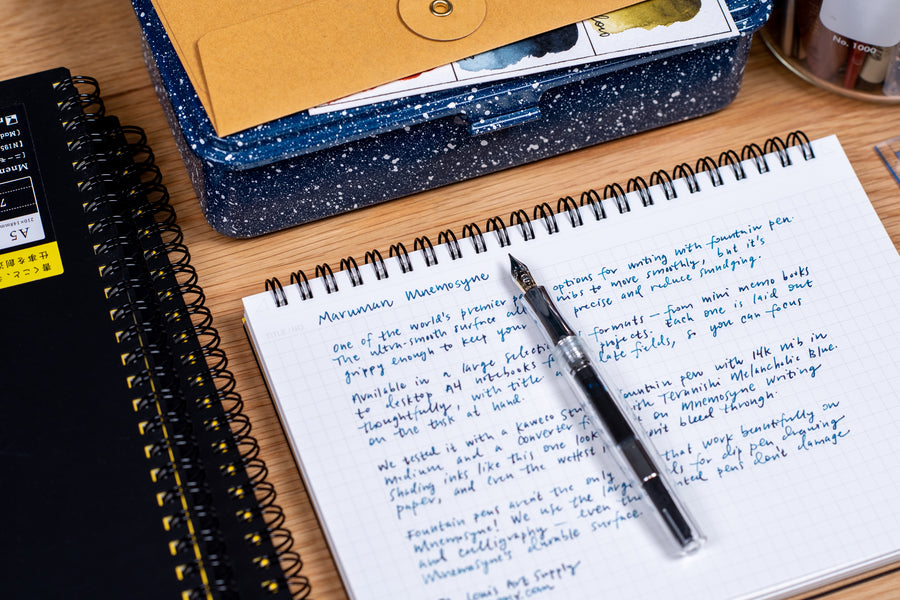 Maruman Mnemosyne
One of the world's premier options for writing with fountain pen.
The ultra-smooth surface nibs to move smoothly, but it's
grippy enough to keep your precise and reduce smudging.
Available in a large selection formats – from mini memo books
to desktop A4 notebooks projects. Each one is laid out
thoughtfully, with title date fields, so you can focus
on the task at hand.
We tested it with a Kaweco fountain pen with 14k nib in
medium, and a converter with Teranishi Melancholic Blue.
shading inks like this one look on Mnemosyne writing
paper, and even the wettest won't bleed through.
Fountain pens aren't the only that work beautifully on
Mnemosyne! We use the large for dip pen drawing
and calligraphy – even the pointed pens don't damage
Mnemosyne's durable surface.
Louis Art Supply
TITLE / NO.
No. 1000
Mnem
7
A5
210×148mm
書くこと、
仕事を創造